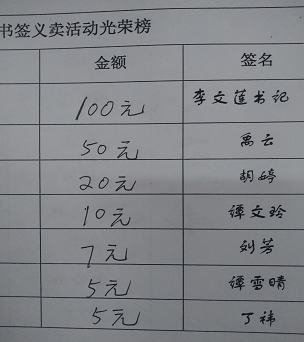 书签义卖活动光荣榜
金额 签名
100元 李文莲书记
50元 禹云
20元 胡婷
10元 谭文玲
7元 刘芳
5元 谭雪晴
5元 丁祎